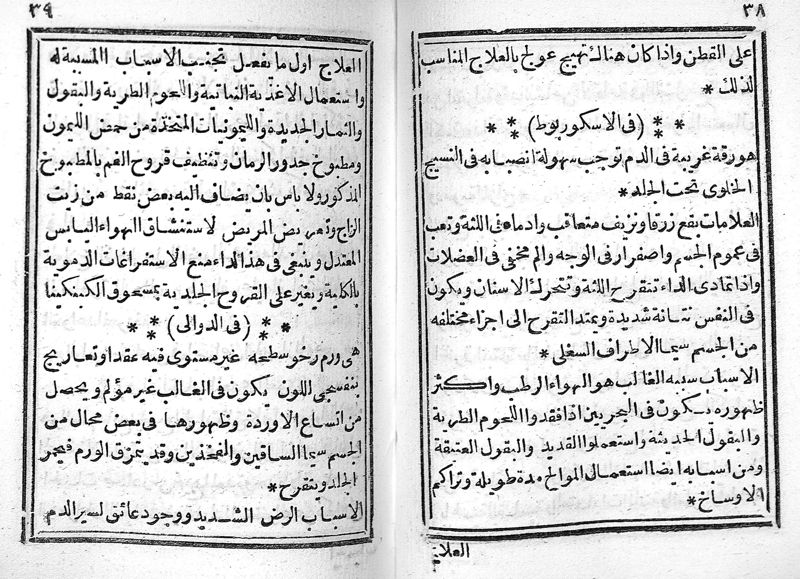 ٣٨
على القطن واذا كان هناك تهيج عولج بالعلاج المناسب
لذلك *
* * (فى الاسكوربوط) * *
هو رقة غريبة فى الدم توجب سهولة انصبابه فى النسيج
الخلوى تحت الجلد *
العلامات بقع زرقا ونزيف متعاقب وادما فى اللثة وتعب
فى عموم الجسم واصفرار فى الوجه والم مخفى فى العضلات
واذا تمادى الداء تتقرح اللثة وتتحرك الاسنان ويكون
فى النفس نتانة شديدة ويمتد التقرح الى اجزاء مختلفه
من الجسم سيما الاطراف السفلى *
الاسباب سببه الغالب هو الهواء الرطب واكثر
ظهوره يكون فى البحريين اذا فقدوا اللحوم الطرية
والبقول الحديثة واستعملوا القديد والبقول العتيقة
ومن اسبابه ايضا استعمال الموالح مدة طويلة وتراكم
الاوساخ *
العلا
٣٩
العلاج اول ما يفعل تجنب الاسباب المسببة له
واستعمال الاغذية النباتية واللحوم الطرية والبقول
والثمار الجديدة والليمونيات المتخذة من حمض الليمون
ومطبوخ جدور الرمان وتنظيف قروح الفم بالمطبوخ
المذكور ولا باس بان يضاف اليه بعض نقط من زيت
الزاج وتعريض المريض لاستنشاق الهواء اليابس
المعتدل وينبغى فى هذا الداء منع الاستفراغات الدموية
بالكلية ويغير على القروح الجلدية بمسحوق الكينكينا
* * (فى الدوالى) * *
هى ورم رخو سطحه غير مستوى فيه عقد او تعاريج
بنفسجى اللون يكون فى الغالب غير مؤلم ويحصل
من اتساع الاوردة وظهورها فى بعض محال من
الجسم سيما الساقين والفخذين وقد يتمزق الورم فيحمر
الجلد ويتقرح *
الاسباب الرض الشديد ووجود عائق لسير الدم